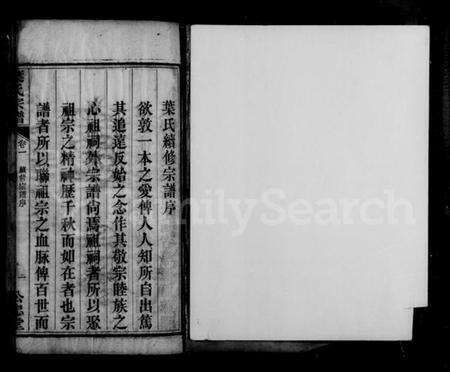 葉氏續修宗譜序
欲敦一本之愛俾人人知所自出篤
其追遠反始之念作其敬宗睦族之
心祖祠與宗譜尚焉祖祠者所以聚
祖宗之精神歷千秋而如在者也宗
譜者所以聯祖宗之血脉俾百世而
葉氏宗譜 卷一 續修宗譜序 一
FamilySearch